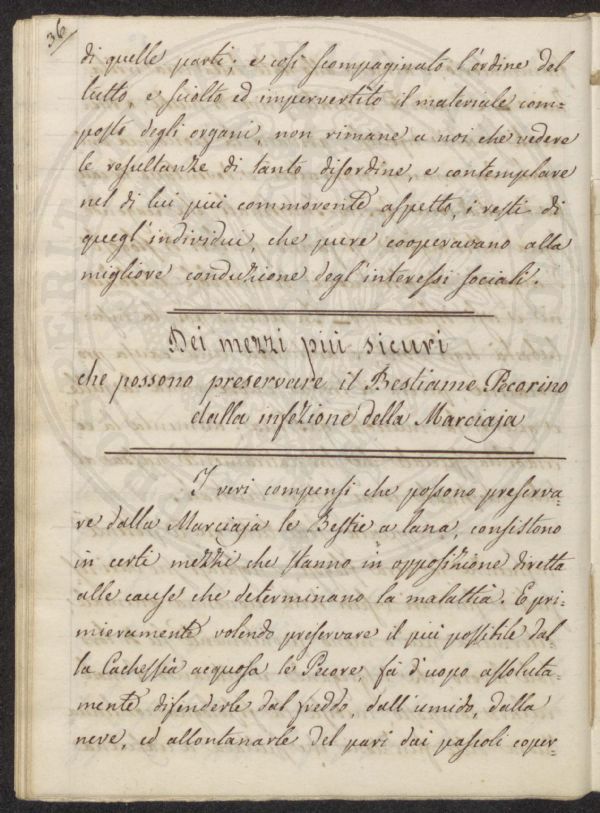 36/
di quelle parti; e così scompaginato l'ordine del
tutto, e sciolto ed impervertito il materiale com=
posto degli organi, non rimane a noi che vedere
le resultanze di tanto disordine, e contemplare
nel di lui più commovente aspetto, i resti di
quegl'individui, che pure cooperavano alla
migliore conduzione degl'interessi sociali.
Dei mezzi più sicuri
che possono preservare il Bestiame Pecorino
dalla infezione della Marciaja
I veri compensi che possono preserva=
re dalla Marciaja le Bestie a lana, consistono
in certi mezzi che stanno in opposizione diretta
alle cause che determinano la malattia. E pri=
mieramente volendo preservare il più possibile dal=
la Cachessia acquosa le Pecore, fà d'uopo assoluta=
mente difenderle dal freddo, dall'umido, dalla
neve, ed allontanarle del pari dai pascoli coper=